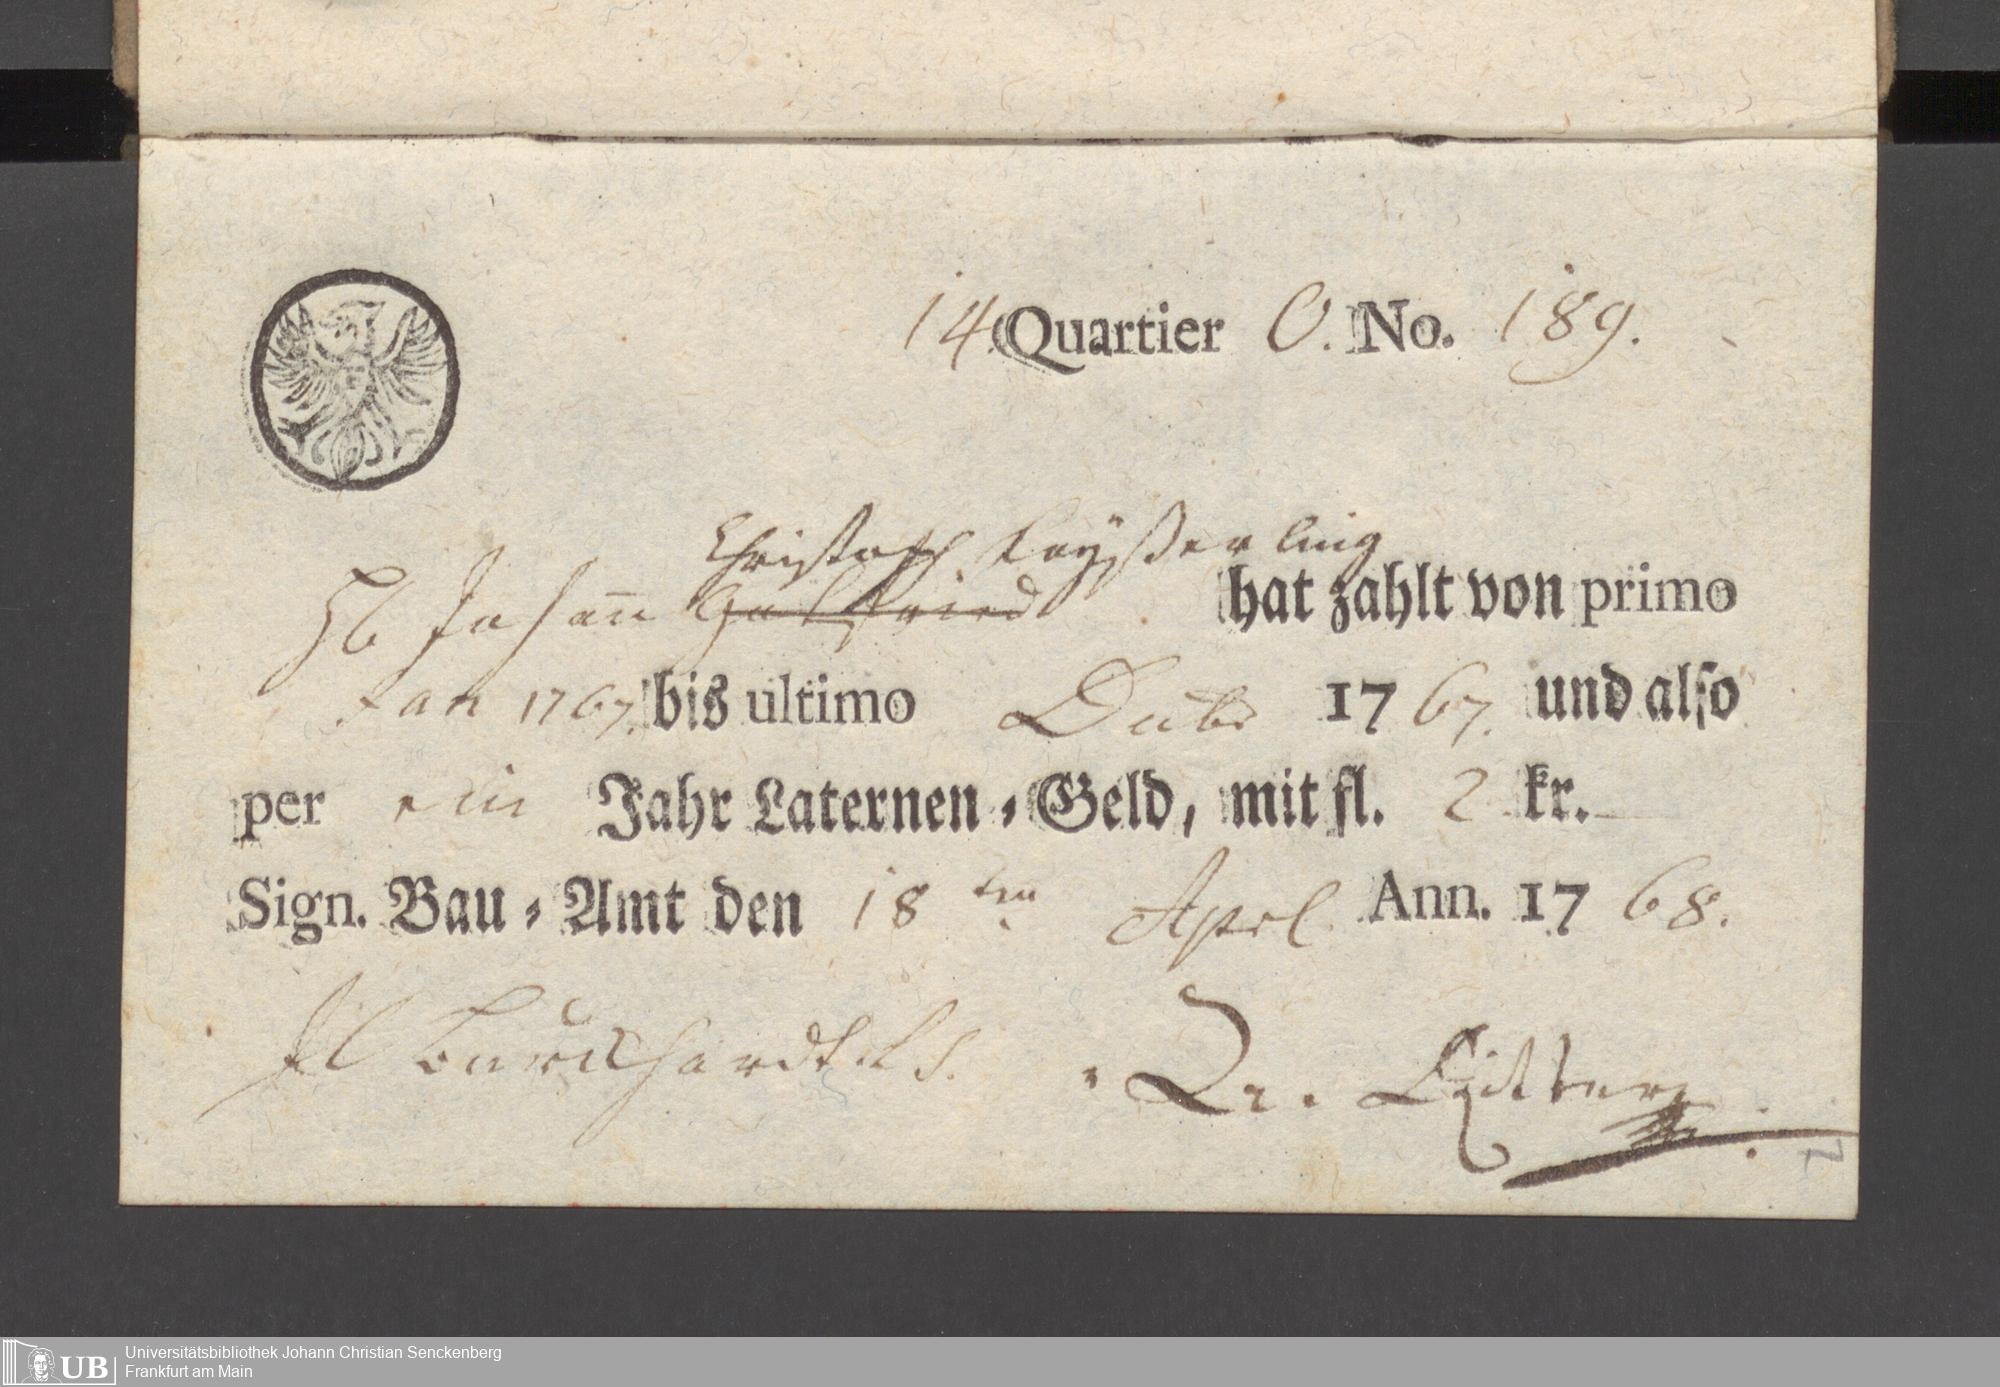 14 Quartier O. No. 189.
Christoph Keyßerling
H Johann hat zahlt von primo
Jan 1767. bis ultimo Decbr 1767. und also
per ein Jahr Laternen-Geld, mit fl. 2 kr. —
Sign. Bau-Amt den 18 ten Aprl. Ann. 1768.
Burckhardt
Dr.
UB
Universitätsbibliothek Johann Christian Senckenberg
Frankfurt am Main